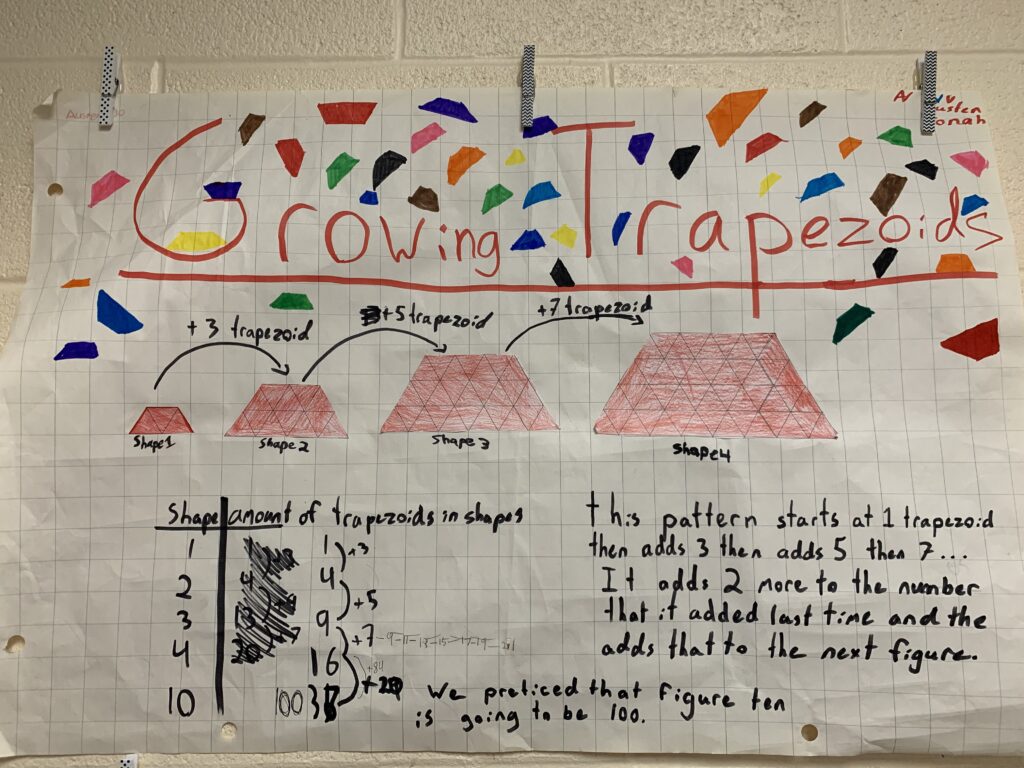 Austen
Jonah
Growing Trapezoids
+3 trapezoid
+5 trapezoid
+7 trapezoid
Shape1
Shape2
Shape3
shape4
Shape amount of trapezoids in shapes
1 1
+3
2 4
+5
3 9
+7 -9-11-13-15-17-19
4 16
+84
10 100
this pattern starts at 1 trapezoid
then adds 3 then adds 5 then 7...
It adds 2 more to the number
that it added last time and the
adds that to the next figure.
We preticed that figure ten
is going to be 100.